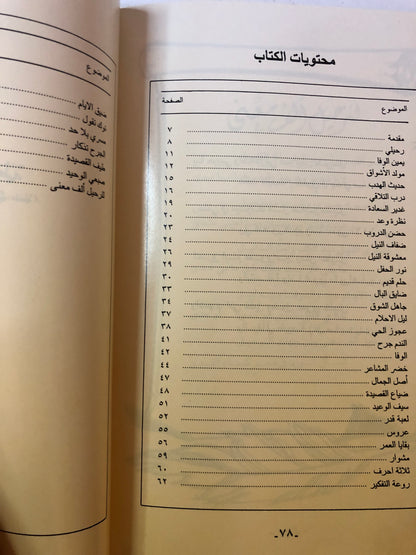 محتويات الكتاب
الموضوع الصفحة
مقدمة ٧
رحيلي ٨
يمين الوفا ١١
مولد الأشواق ١٢
حديث الهدب ١٥
درب التلاقي ١٦
غدير السعادة ١٩
نظرة وعد ٢٠
حضن الدروب ٢٣
ضفاف النيل ٢٤
معشوقة النيل ٢٦
نور الحفل ٢٩
حلم قديم ٣٠
ضايق البال ٣٣
جاهل الشوق ٣٤
ليل الاحلام ٣٧
عجوز الحي ٣٨
الندم جرح ٤١
الوفا ٤٢
خضر المشاعر ٤٤
أصل الجمال ٤٧
ضياع القصيدة ٤٨
سيف الوعيد ٥١
لعبة قدر ٥٢
عروس ٥٥
بقايا العمر ٥٦
مشوار ٥٩
ثلاثة احرف ٦٠
روعة التفكير ٦٢
-٧٨-
الموضوع
ضيق الايام
تولد تقول
سري بلا حد
اجرح تذكار
خيف القصيدة
سبعي الوحيد
لرحيل ألف معنى